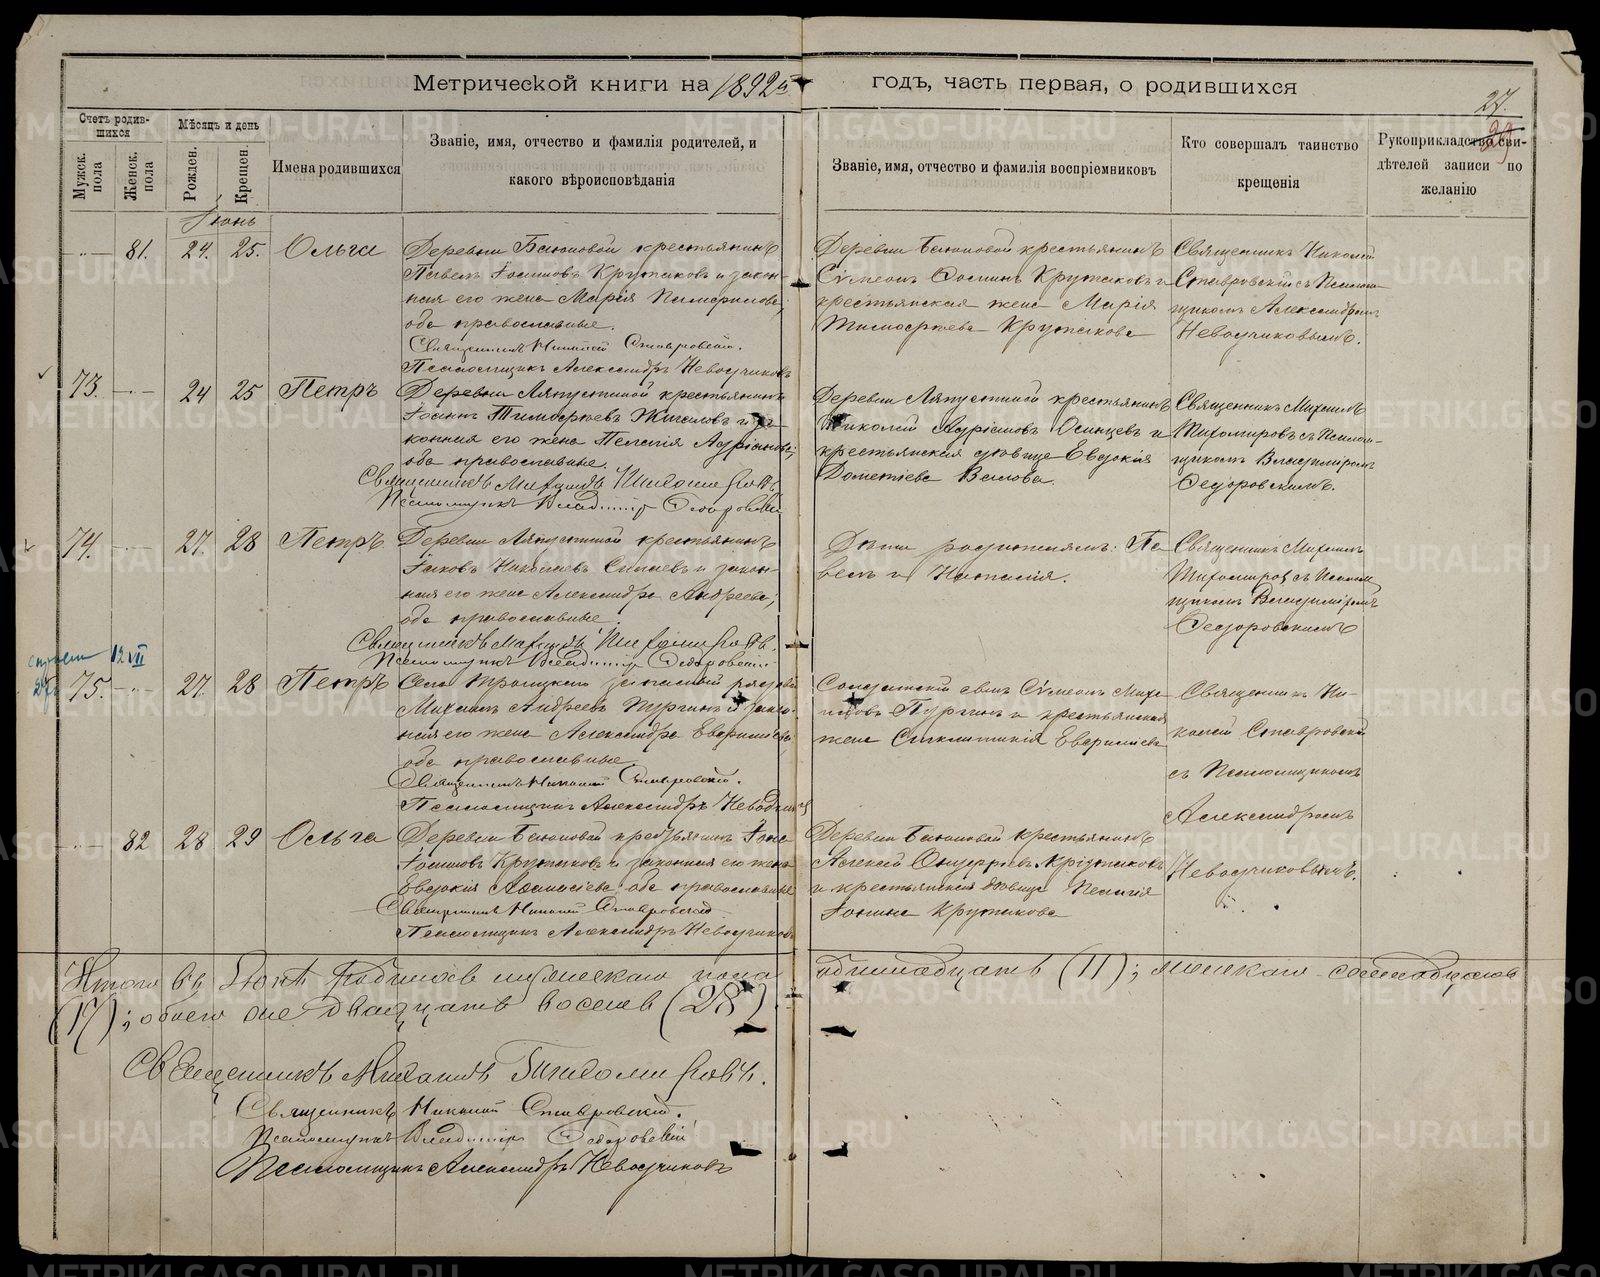 Метрической книги на 1892й годъ, часть первая, о родившихся
27.
29
Счетъ родив-
шихся
Мѣсяцъ и день
Мужск.
пола
Женск.
пола
Рожден.
Крещен.
Имена родившихся
Званіе, имя, отчество и фамилія родителей, и
какого вѣроисповѣданія
Званіе, имя, отчество и фамилія воспріемниковъ
Кто совершалъ таинство
крещенія
Рукоприкладство сви-
дѣтелей записи по
желанію
Іюнь
81. 24. 25. Ольга
крестьянинъ
Павелъ Іосифовъ Кружаковъ и закон-
ная его жена Марія
оба православные.
Священникъ Николай Ставровскій.
Псаломщикъ Александръ Неводчиковъ
крестьянинъ
Сѵмеонъ Кружаковъ и
крестьянская жена Марія
Тимофеева Кружакова
Священникъ Николай
Ставровскій съ Псалом-
щикомъ Александромъ
Неводчиковымъ.
73. 24 25 Петръ
Деревни Ляпустиной крестьянинъ
Іоаннъ Тимофеевъ и за-
конная его жена Пелагія Адріанова;
оба православные.
Священникъ Михаилъ Тихомировъ.
Псаломщикъ Владиміръ Федоровскій
Деревни Ляпустиной крестьянинъ
Николай Адріановъ Осинцевъ и
крестьянская дѣвица Евдокія
Дометіева
Священникъ Михаилъ
Тихомировъ съ Псалом-
щикомъ Владиміромъ
Федоровскимъ.
74. 27. 28 Петръ
Деревни Ляпустиной крестьянинъ
Іаковъ Николаевъ и закон-
ная его жена Александра Андреева;
оба православные.
Священникъ Михаилъ Тихомировъ.
Псаломщикъ Владиміръ Федоровскій
Дѣти родителямъ: Па-
велъ и Наталія.
Священникъ Михаилъ
Тихомировъ съ Псалом-
щикомъ Владиміромъ
Федоровскимъ
12 VII
75. 27. 28 Петръ
Села Троицкаго запасный рядовой
Михаилъ Андреевъ и закон-
ная его жена Александра
оба православные.
Священникъ Николай Ставровскій.
Псаломщикъ Александръ Неводчиковъ
Солдатскій сынъ Сѵмеонъ Миха-
иловъ и крестьянская
жена Синклитикія
Священникъ Ни-
колай Ставровскій
съ Псаломщикомъ
Александромъ
Неводчиковымъ.
82 28 29 Ольга
крестьянинъ
Іосифовъ Кружаковъ и законная его жена
Евдокія Афанасіева; оба православные
Священникъ Николай Ставровскій
Псаломщикъ Александръ Неводчиковъ
крестьянинъ
Алексей Онуфріевъ Кружаковъ
и крестьянская дѣвица Пелагія
Іонина Кружакова
Итого въ Іюнѣ родилось мужескаго пола одиннадцать (11); женскаго семнадцать
(17); обоего же двадцать восемь (28).
Священникъ Михаилъ Тихомировъ.
Священникъ Николай Ставровскій.
Псаломщикъ Владиміръ Федоровскій
Псаломщикъ Александръ Неводчиковъ
METRIKI.GASO-URAL.RU